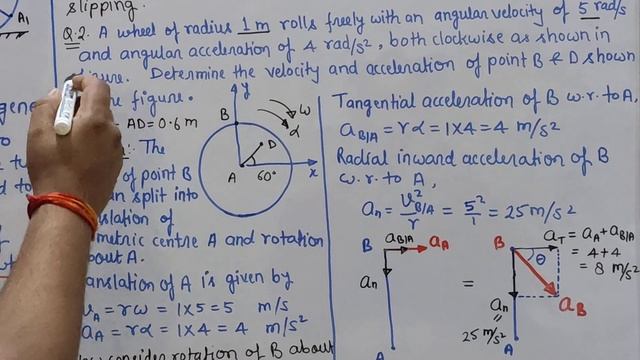 slipping.
Q.2. A wheel of radius 1 m rolls freely with an angular velocity of 5 rad/s
and angular acceleration of 4 rad/s², both clockwise as shown in
figure. Determine the velocity and acceleration of point B & D shown
figure.
AD = 0.6 m
The
of point B
split into
of
centre A and rotation
about A.
translation of A is given by
v_A = rω = 1×5 = 5 m/s
a_A = rα = 1×4 = 4 m/s²
consider rotation of B about
y
B
ω
α
D
A
60°
x
A₁
Tangential acceleration of B w.r.to A,
a_B/A = rα = 1×4 = 4 m/s²
Radial inward acceleration of B
w.r.to A,
a_n = v²_B/A / r = 5²/1 = 25 m/s²
B a_B/A a_A
a_n
A
=
B a_T = a_A + a_B/A
= 4+4
= 8 m/s²
θ
a_n
=
25 m/s²
a_B
A